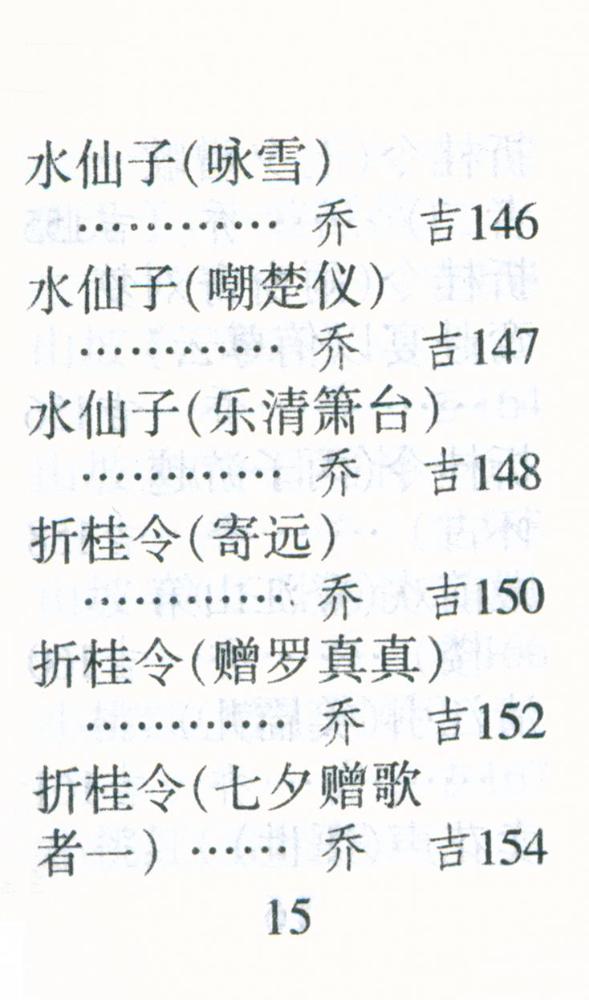 水仙子(咏雪)
………… 乔 吉146
水仙子(嘲楚仪)
………… 乔 吉147
水仙子(乐清箫台)
………… 乔 吉148
折桂令(寄远)
………… 乔 吉150
折桂令(赠罗真真)
………… 乔 吉152
折桂令(七夕赠歌
者一) …… 乔 吉154
15